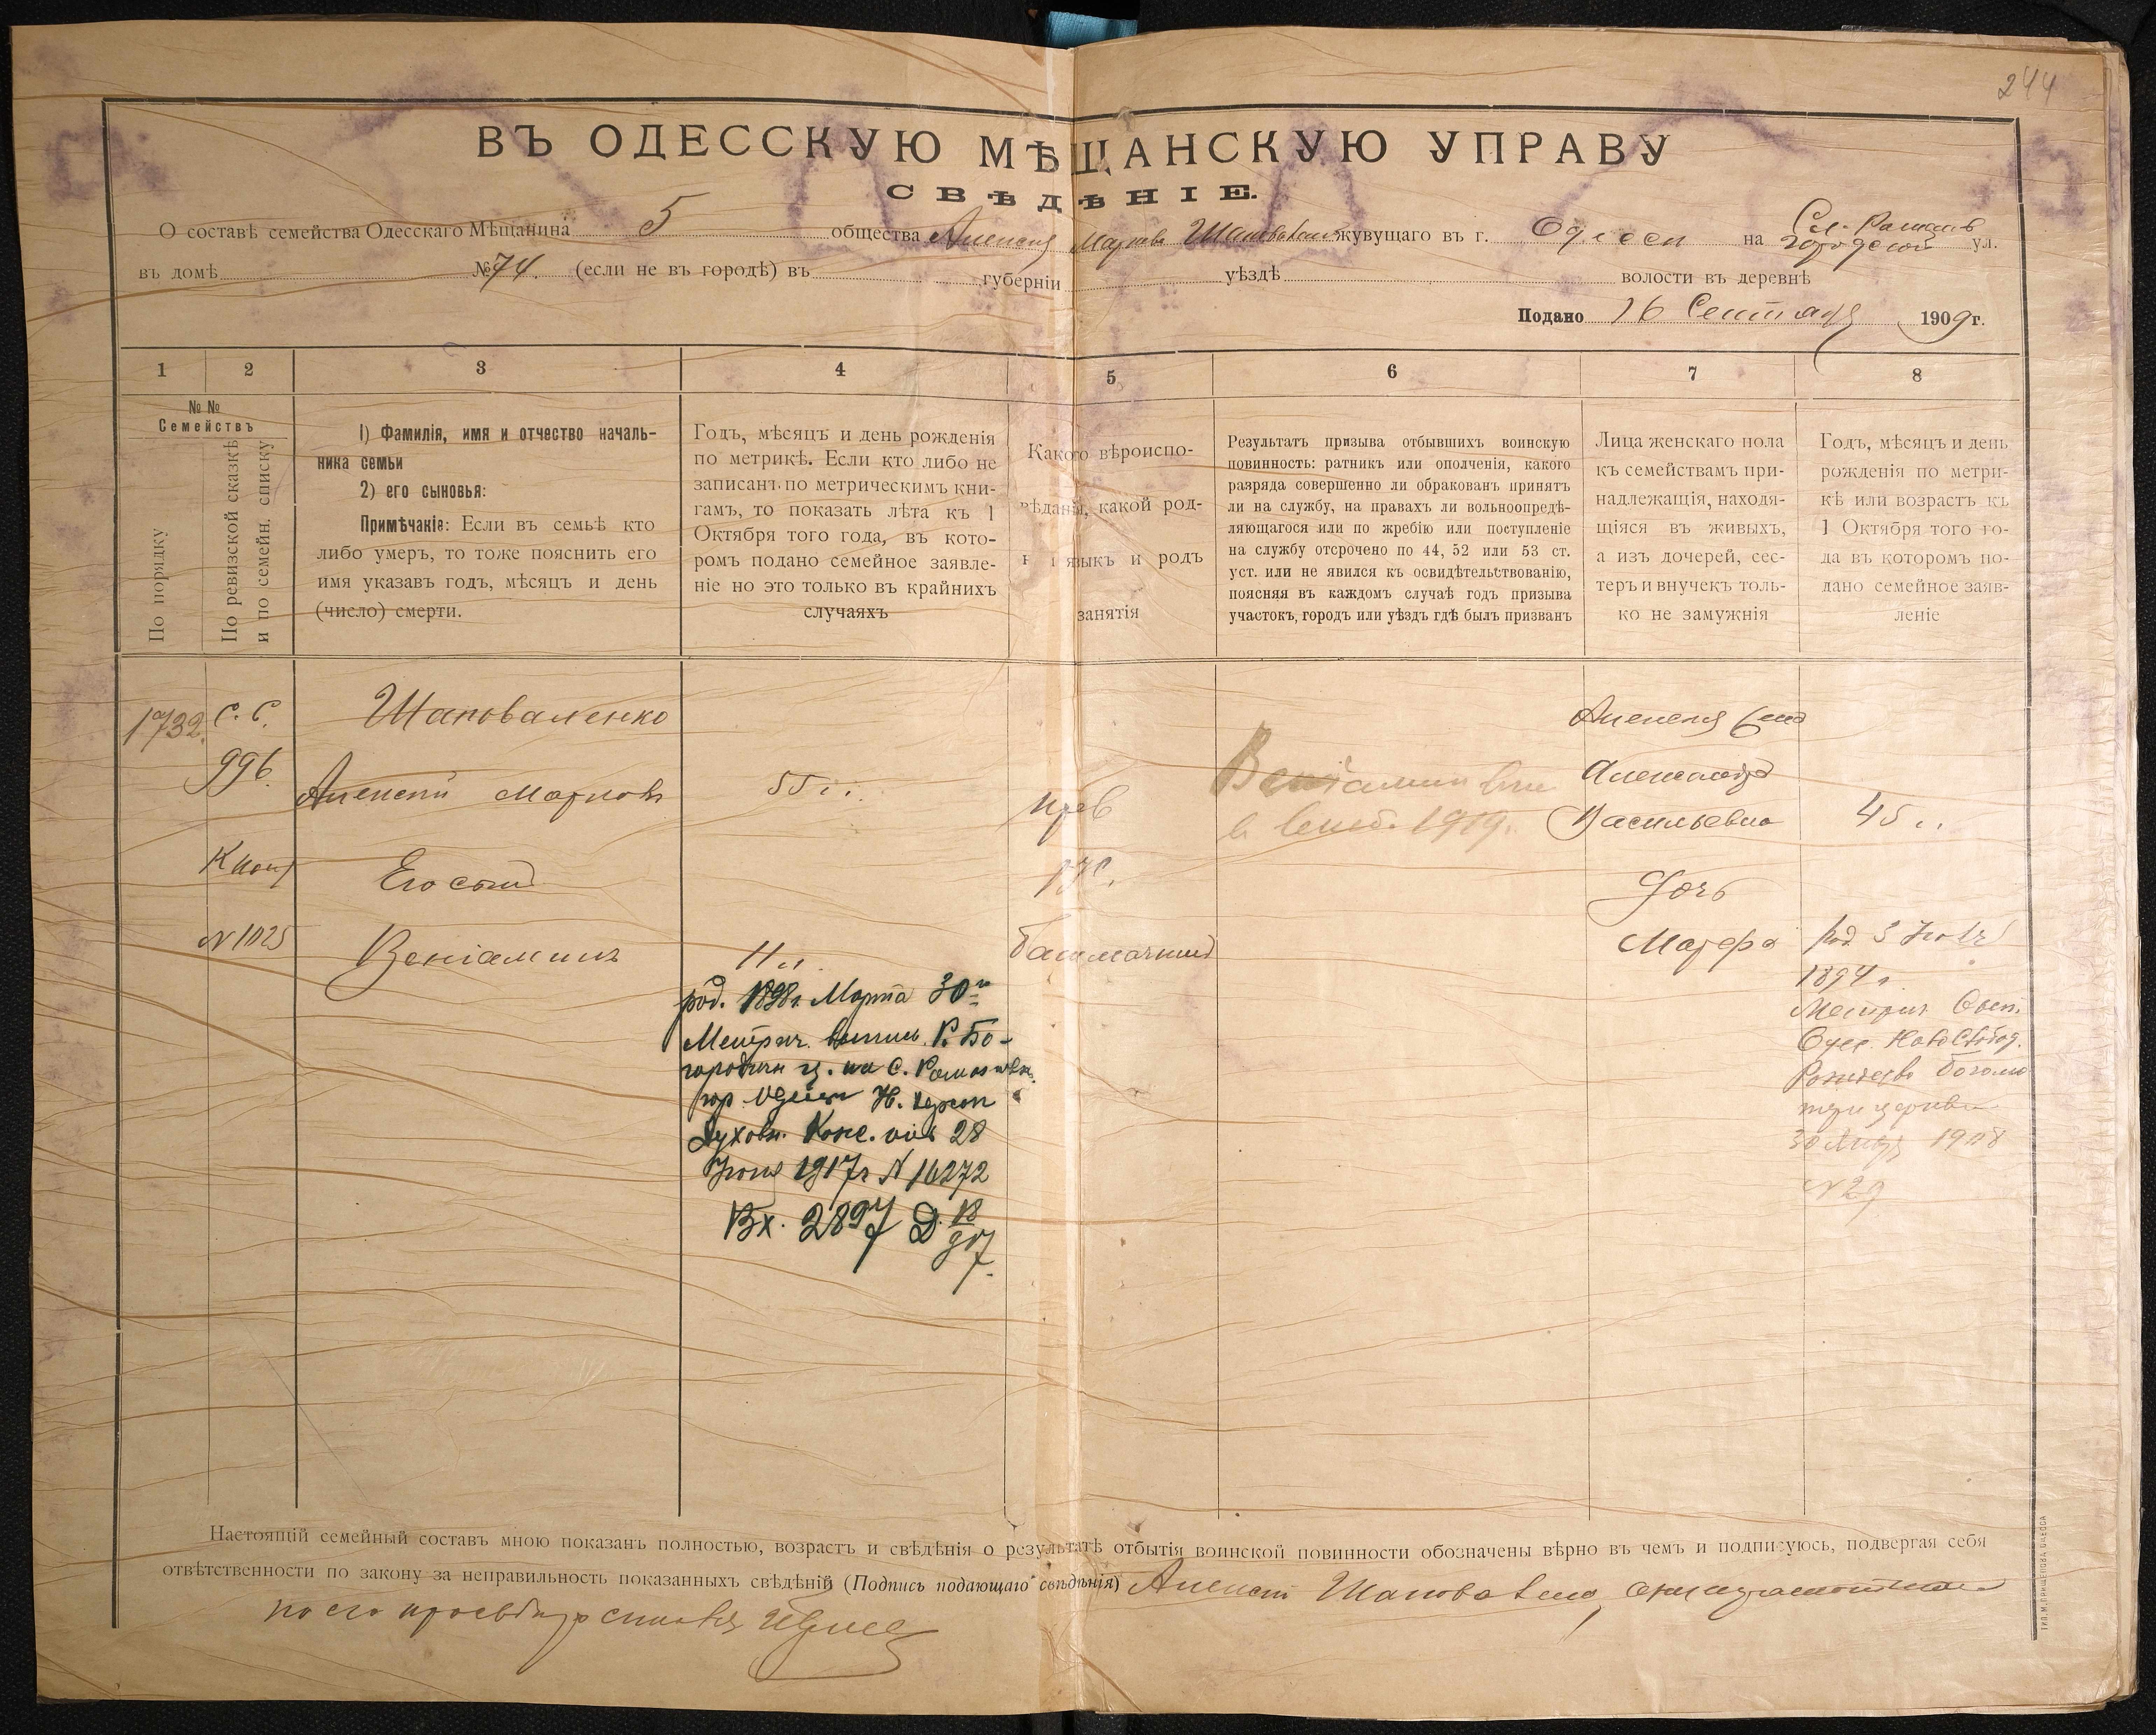 244
ВЪ ОДЕССКУЮ МѢЩАНСКУЮ УПРАВУ
СВѢДѢНІЕ.
О составѣ семейства Одесскаго Мѣщанина 5 общества Алексея Маркова жувущаго въ г. Одессы на Сл. Роман. городской ул.
въ домѣ № 74. (если не въ городѣ) въ губерніи уѣздѣ волости въ деревнѣ
Подано 16 Сентября 1909 г.
1 2 3 4 5 6 7 8
№ №
Семействъ
По порядку
По ревизской сказкѣ
и по семейн. списку
1) Фамилія, имя и отчество началь-
ника семьи
2) его сыновья:
Примѣчакіе: Если въ семьѣ кто
либо умеръ, то тоже пояснить его
имя указавъ годъ, мѣсяцъ и день
(число) смерти.
Годъ, мѣсяцъ и день рожденія
по метрикѣ. Если кто либо не
записанъ по метрическимъ кни-
гамъ, то показать лѣта къ 1
Октября того года, въ кото-
ромъ подано семейное заявле-
ніе но это только въ крайнихъ
случаяхъ
Какого вѣроиспо-
вѣданія, какой род-
языкъ и родъ
занятія
Результатъ призыва отбывшихъ воинскую
повинность: ратникъ или ополченія, какого
разряда совершенно ли обракованъ принятъ
ли на службу, на правахъ ли вольноопредѣ-
ляющагося или по жребію или поступленіе
на службу отсрочено по 44, 52 или 53 ст.
уст. или не явился къ освидѣтельствованію,
поясняя въ каждомъ случаѣ годъ призыва
участокъ, городъ или уѣздъ гдѣ былъ призванъ
Лица женскаго пола
къ семействамъ при-
надлежащія, находя-
щіяся въ живыхъ,
а изъ дочерей, сес-
теръ и внучекъ толь-
ко не замужнія
Годъ, мѣсяцъ и день
рожденія по метри-
кѣ или возрастъ къ
1 Октября того го-
да въ которомъ по-
дано семейное заяв-
леніе
1732.
С. С.
996.
N 1025
Шаповаленко
Алексей Марковъ
Его сынъ
Веніаминъ
55 л.
11 л.
род. 1898 г. Марта 30го
Метрич. выпись Р. Бо-
городичн ц. на С. Романовк.
гор. Одессы Х. Херсон
Духовн. Конс. отъ 28
Іюня 1917 г N 16272
Вх. 2897 Д. 18/907.
прав
башмачникъ
Веніаминъ
1919.
Алексея
Александра
Васильевна
45 л.
Дочь
Марфа
род 3
1894 г.
Метрич
Одес. НовоСлобод.
Рождество Богоро
церкви
1908
N 29
Настоящій семейный составъ мною показанъ полностью, возрастъ и свѣдѣнія о результатѣ отбытія воинской повинности обозначены вѣрно въ чемъ и подписуюсь, подвергая себя
отвѣтственности по закону за неправильность показанныхъ свѣдѣній (Подпись подающаго свѣдѣнія) Алексей
по его просьбѣ